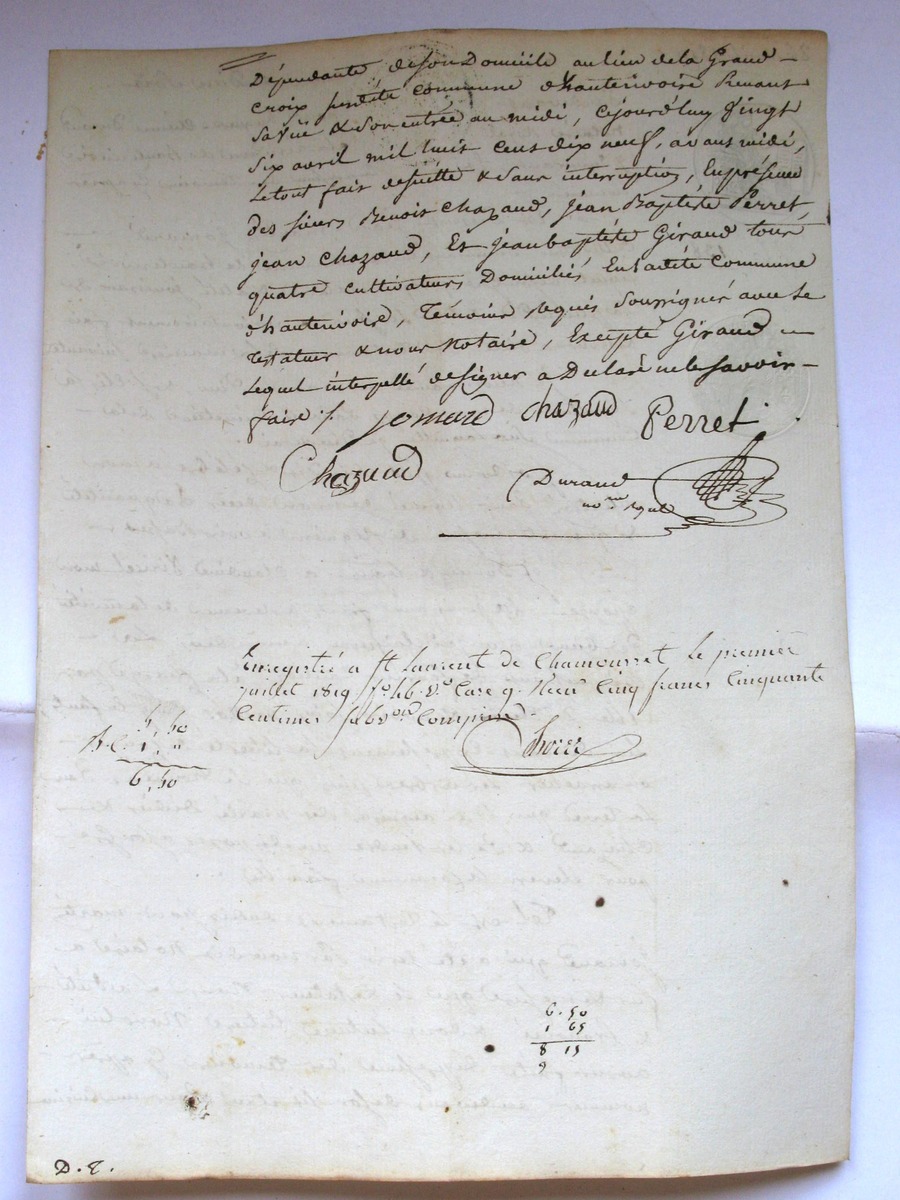 Dépendante de son Domicile au lieu de la Grand-
croix susdite commune d'hauterivoire Prenant
sa vüe & son entrée au midi, cejourd'huy Vingt
six avril mil huit cent dix neuf, avant midi,
Le tout fait de suitte & sans interruption, En présence
des sieurs Benoit Chazaud, jean Baptiste Perret,
jean Chazaud, Et jean baptiste Giraud tous
quatre cultivateurs Domiciliés En ladite Commune
d'hauterivoire, Témoins requis soussignés avec le
testateur & nous Notaire, Excepté Giraud
Lequel interpellé de signer a Declaré ne le savoir
faire /. jomard chazaud Perret
Chazaud
Durand
no.re
Enregistré a St Laurent de Chamousset Le premier
juillet 1819 fo. 46. vo. Case 9. Recu Cinq francs Cinquante
Centimes Compris
5, 50
1, "
6, 50
6. 50
1 65
8 15
9
D. E.